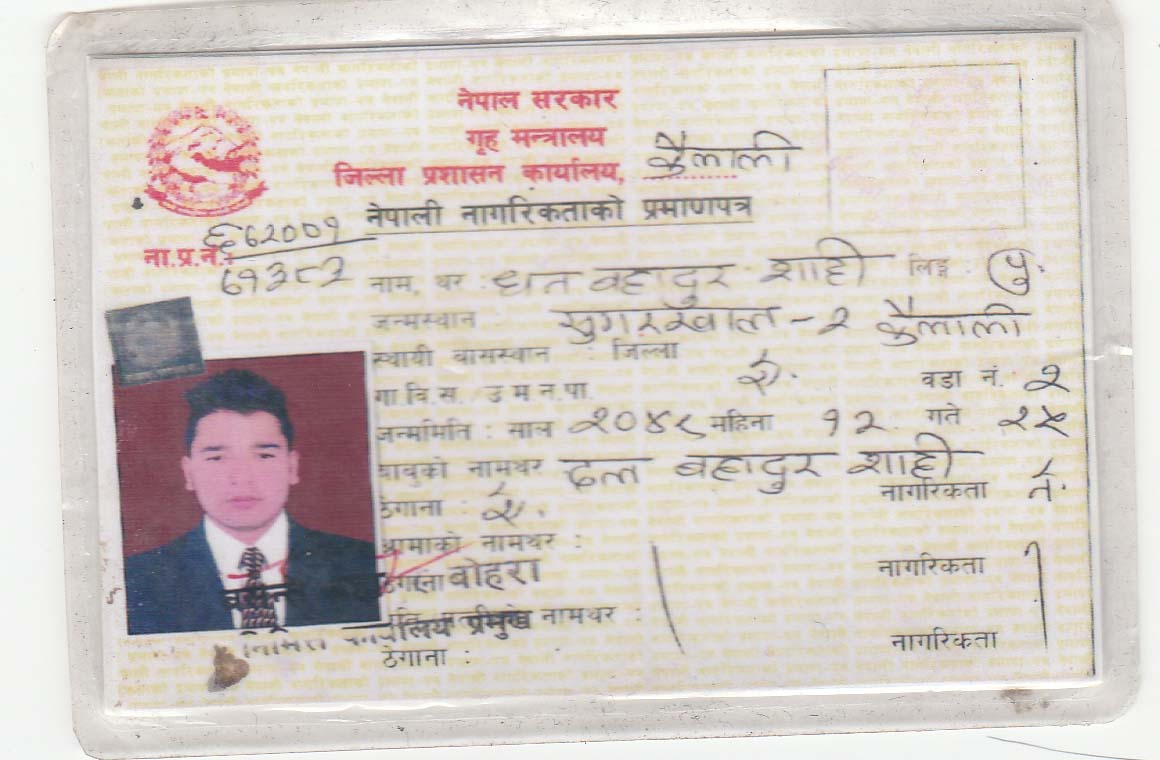 नेपाल सरकार
गृह मन्त्रालय
जिल्ला प्रशासन कार्यालय, कैलाली
नेपाली नागरिकताको प्रमाणपत्र
ना.प्र.नं.: ६६२००१
६१३८३
नाम, थर : धन बहादुर शाही लिङ्ग : पु.
जन्मस्थान सुगरखाल - २ कैलाली
स्थायी बासस्थान : जिल्ला
गा.वि.स. उ म न.पा. ऐ. वडा नं. २
जन्ममिति : साल २०४८ महिना १२ गते २५
बाबुको नामथर दल बहादुर शाही
ठेगाना : ऐ. नागरिकता ने.
आमाको नामथर :
ठेगाना नागरिकता
बोहरा
नामथर :
निमित्त कार्यालय प्रमुख
ठेगाना : नागरिकता